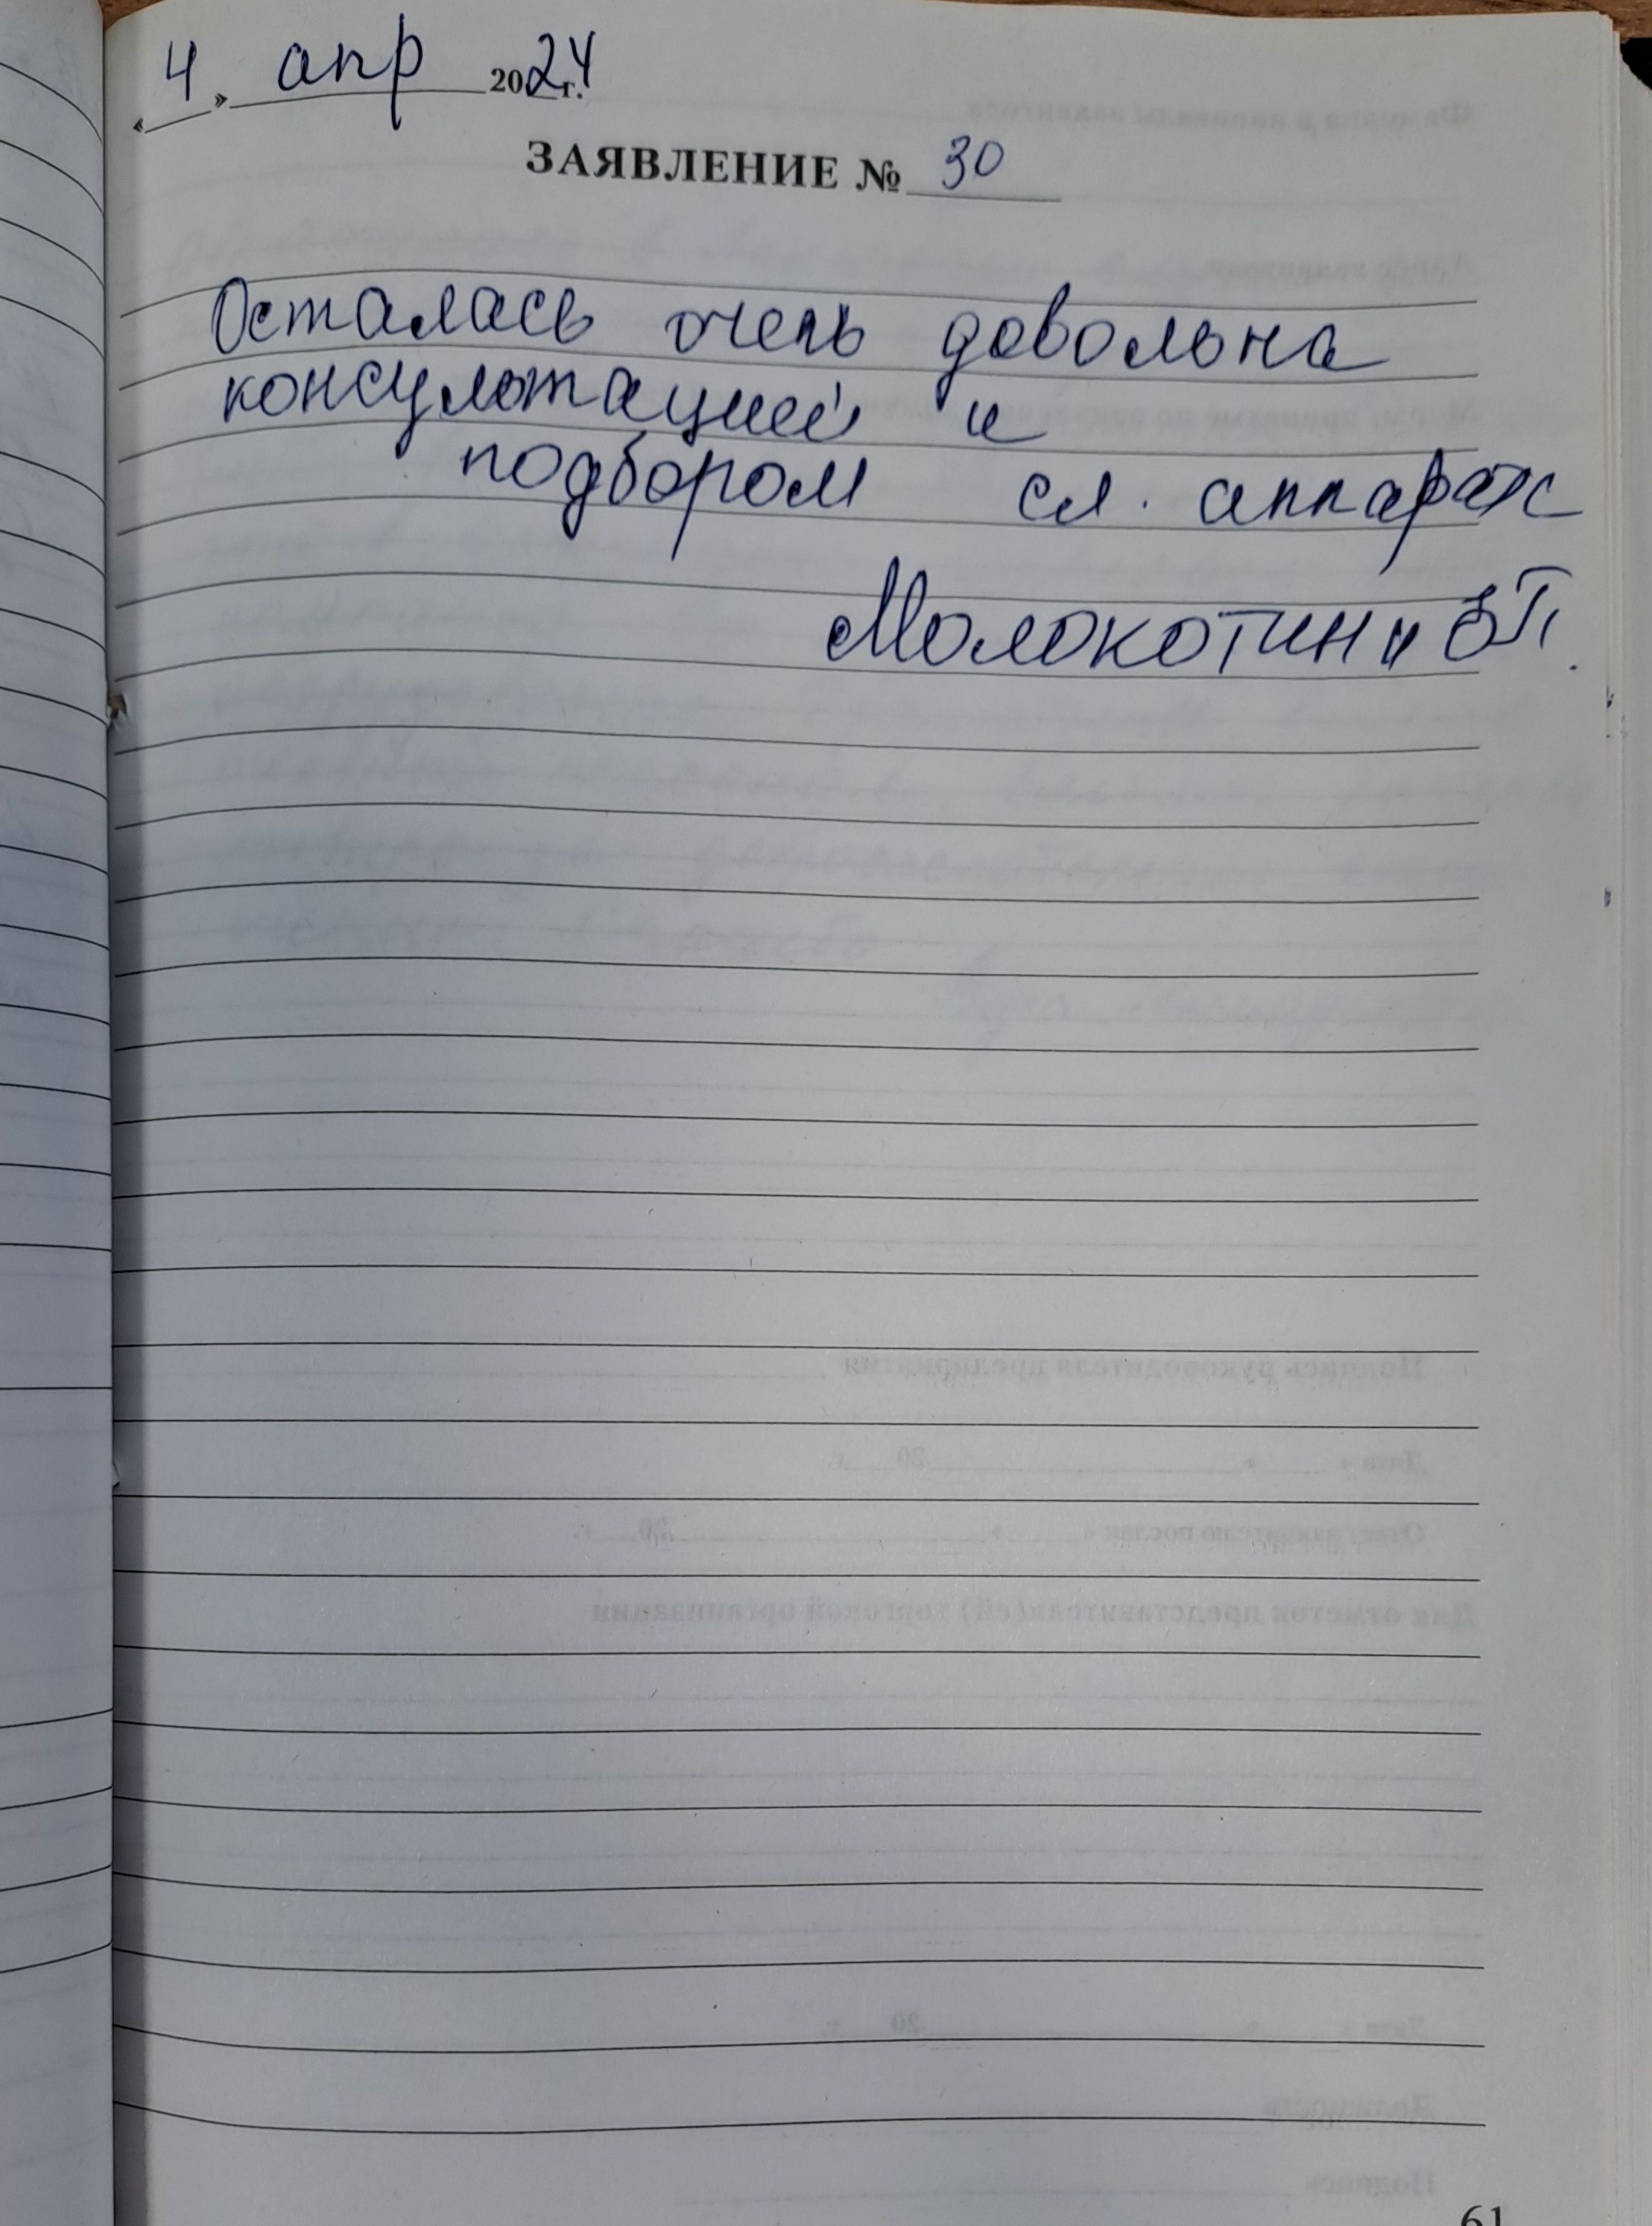 «4» апр 2024г.
ЗАЯВЛЕНИЕ № 30
Осталась очень довольна
консультацией и
подбором сл. аппарат
61